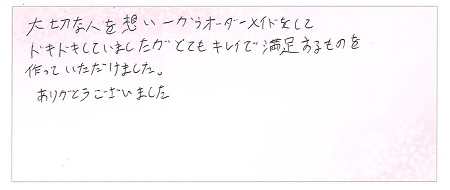 大切な人を想い一からオーダーメイドをして
ドキドキしていましたがとてもキレイで満足するものを
作っていただけました。
ありがとうございました